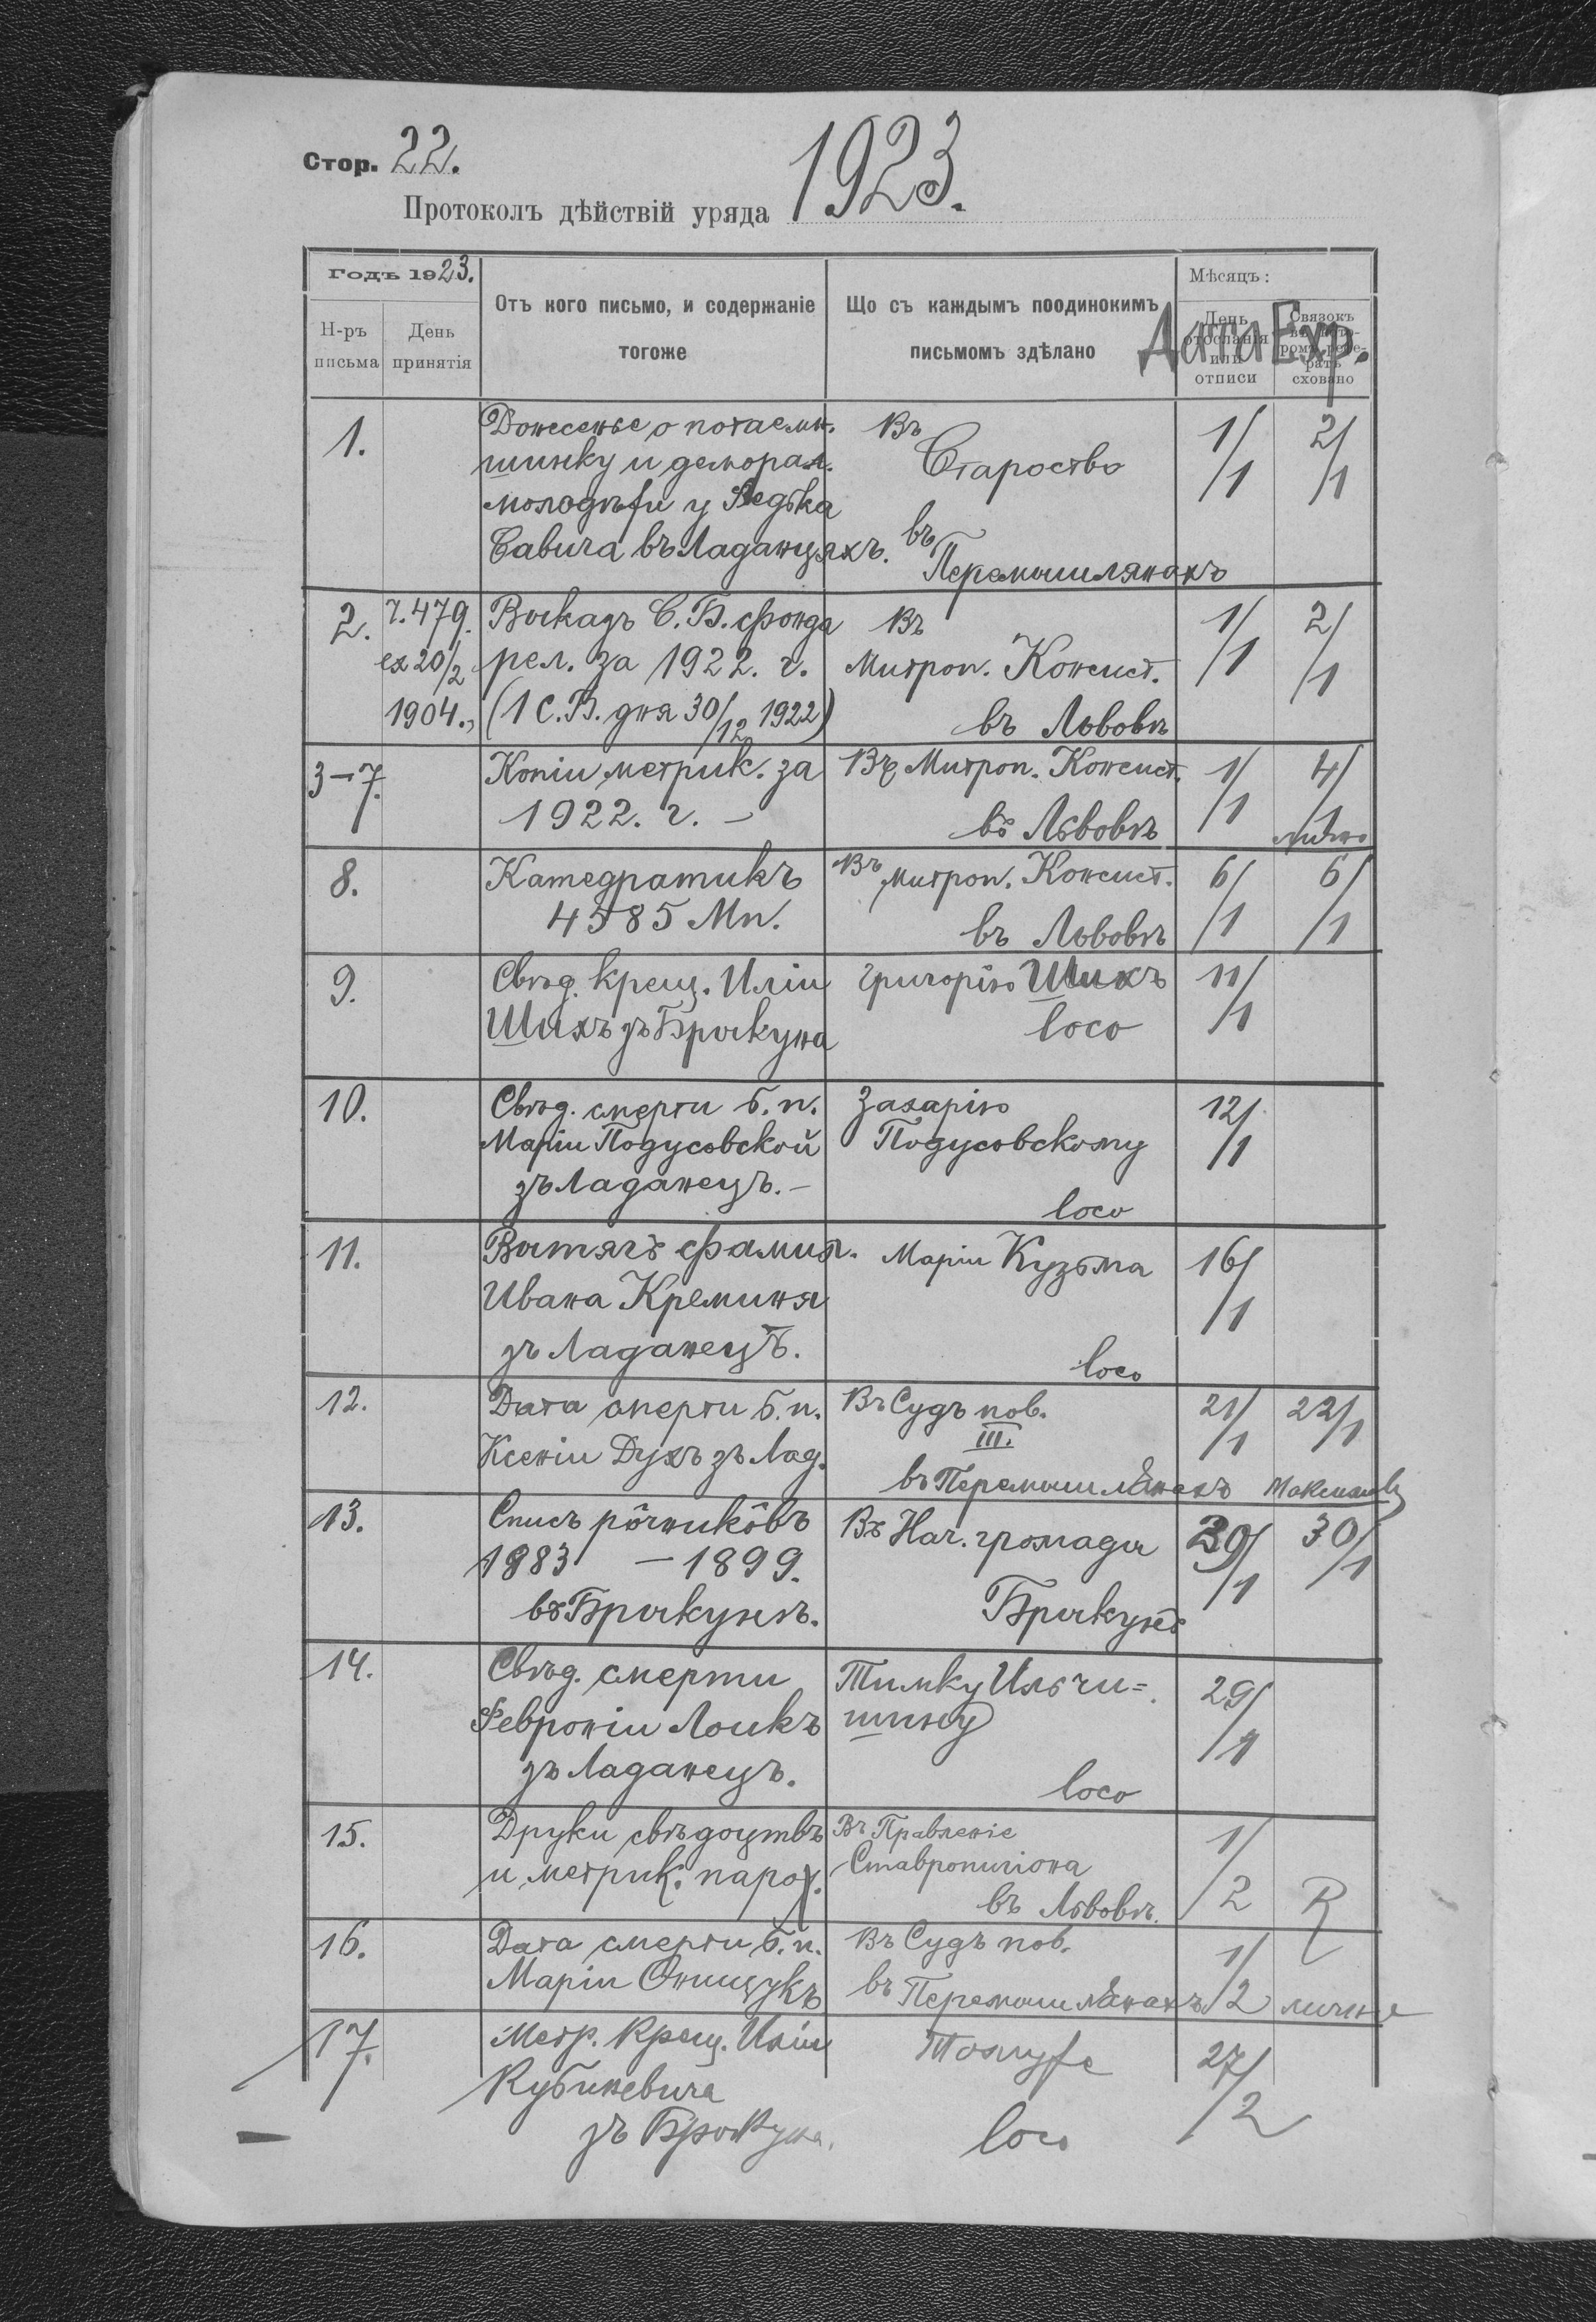 Стор. 22.
1923.
Протоколъ дѣйствій уряда
Годъ 1923.
Н-ръ письма
День принятія
Отъ кого письмо, и содержаніе
тогоже
Що съ каждымъ поодинокимъ
письмомъ здѣлано
Мѣсяцъ:
День отосланія или отписи
Связокъ сховано
Дата Exp.
1.
Донесенье о потаемн.
шинку и деморал.
молодѣжи у Ѳедька
Савича въ Ладанцяхъ.
Въ
Староство
въ
Перемышлянахъ
1/1
2/1
2.
ч. 479.
ex 20/2
1904.,
Выказъ С. Б. фонда
рел. за 1922. г.
(1 С. В. дня 30/12 1922)
Въ
Митроп. Консист.
въ Львовѣ
1/1
2/1
3–7.
Копіи метрик. за
1922. г. –
Въ Митроп. Консист.
въ Львовѣ
1/1
4/1
8.
Катедратикъ
4585 Мп.
Въ Митроп. Консист.
въ Львовѣ
6/1
6/1
9.
Свѣд. крещ. Иліи
Шихъ зъ Брыкуна
Григорію Шихъ
loco
11/1
10.
Свѣд. смерти б. п.
Маріи Подусовской
зъ Ладанецъ. –
Захарію
Подусовскому
loco
12/1
11.
Вытягъ фамил.
Ивана Креминя
зъ Ладанецъ.
Маріи Кузьма
loco
16/1
12.
Дата смерти б. п.
Ксеніи Духъ зъ Лад.
Въ Судъ пов.
III.
въ Перемышлянахъ
21/1
22/1
13.
Списъ рôчникôвъ
1883 – 1899.
въ Брыкунѣ.
Въ Нач. громады
Брыкунъ
30/1
30/1
14.
Свѣд. смерти
Февроніи Лоикъ
зъ Ладанецъ.
Тимку Ильчи=
шину
loco
29/1
15.
Друки свѣдоцтвъ
и метрик. парох.
Въ Правленіе
Ставропигіона
въ Львовѣ.
1/2
R
16.
Дата смерти б. п.
Маріи Онищукъ
Въ Судъ пов.
въ Перемышлянахъ
1/2
лично
17.
Метр. крещ. Иліи
Кубиневича
зъ Брыкуна.
Томуже
loco
27/2